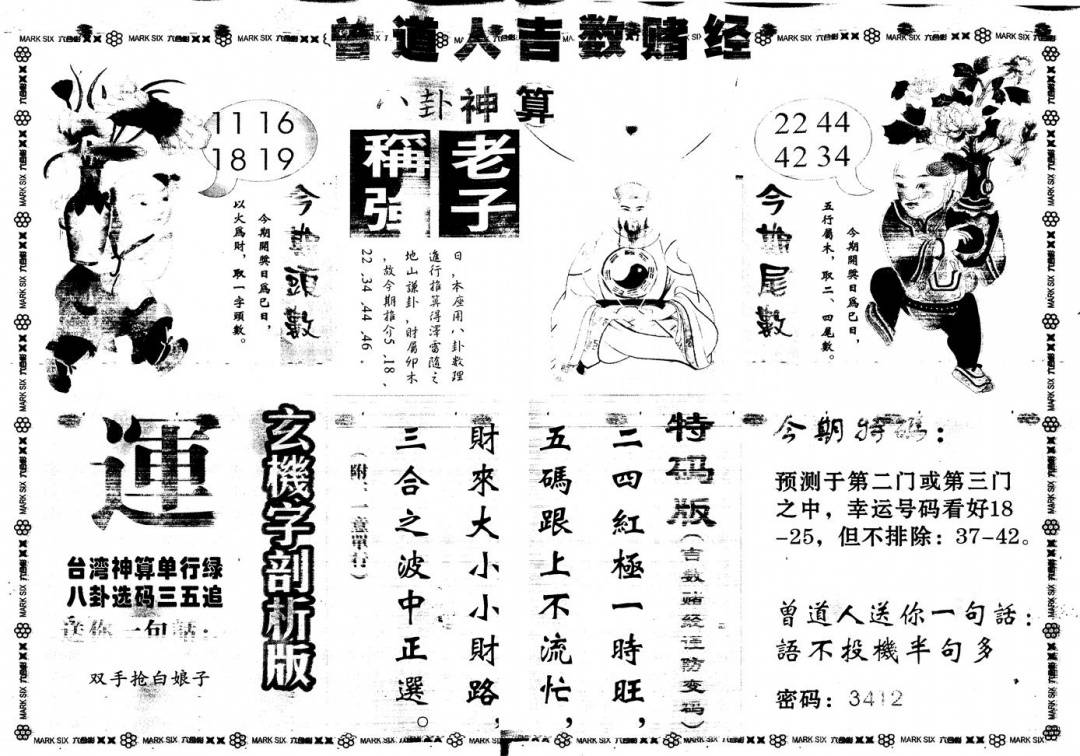 曾道人吉数赌经
八卦神算
11 16
18 19
今期頭數
今期開獎日爲巳日，
以火爲財，取一字頭數。
老子
稱強
日，本座用八卦數理
進行推算得澤雷隨之
地山謙卦，財屬卯木
，故今期推介5 .18 、
22 .34 .44 .46 .
22 44
42 34
今期尾數
今期開獎日爲巳日，
五行屬木，取二、四尾數。
運
台湾神算单行绿
八卦选码三五追
送你一句話：
双手抢白娘子
玄機字剖析版
特码版（吉数赌经谨防变码）
二四紅極一時旺，
五碼跟上不流忙，
財來大小小財路，
三合之波中正選。
今期特碼：
预测于第二门或第三门
之中，幸运号码看好18
-25，但不排除：37-42。
曾道人送你一句話：
語不投機半句多
密码：3412
MARK SIX 六合彩